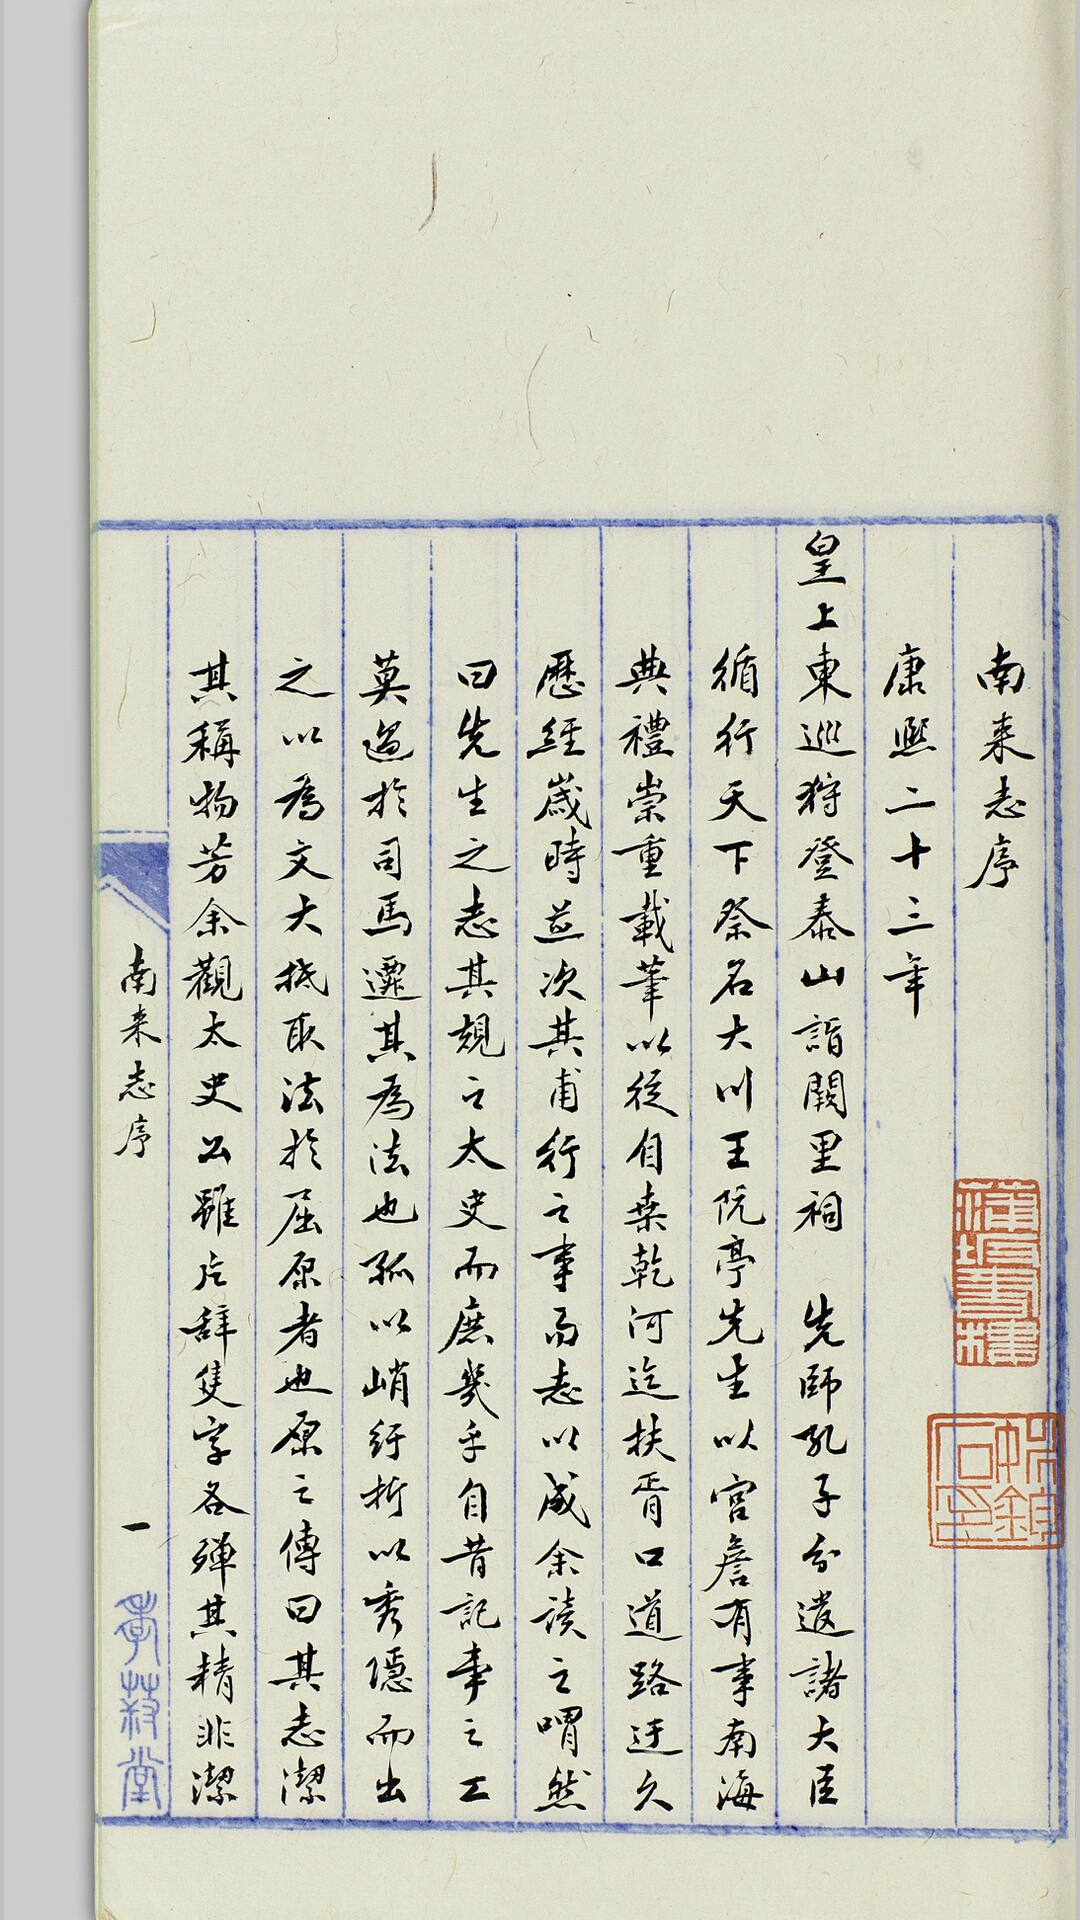 南来志序
康熙二十三年
皇上東巡狩登泰山詣闕里祠　先師孔子分遣諸大臣
循行天下祭名大川王阮亭先生以宮詹有事南海
典禮崇重載筆以從自桑乾河迄扶胥口道路迂久
歷經歲時並次其甫行之事而志以成余讀之喟然
曰先生之志其規之太史而庶幾乎自昔記事之工
莫過於司馬遷其為法也孤以峭紆折以秀隱而出
之以為文大抵取法於屈原者也原之傳曰其志潔
其稱物芳余觀太史公雖片辭隻字各殫其精非潔
南来志序
一